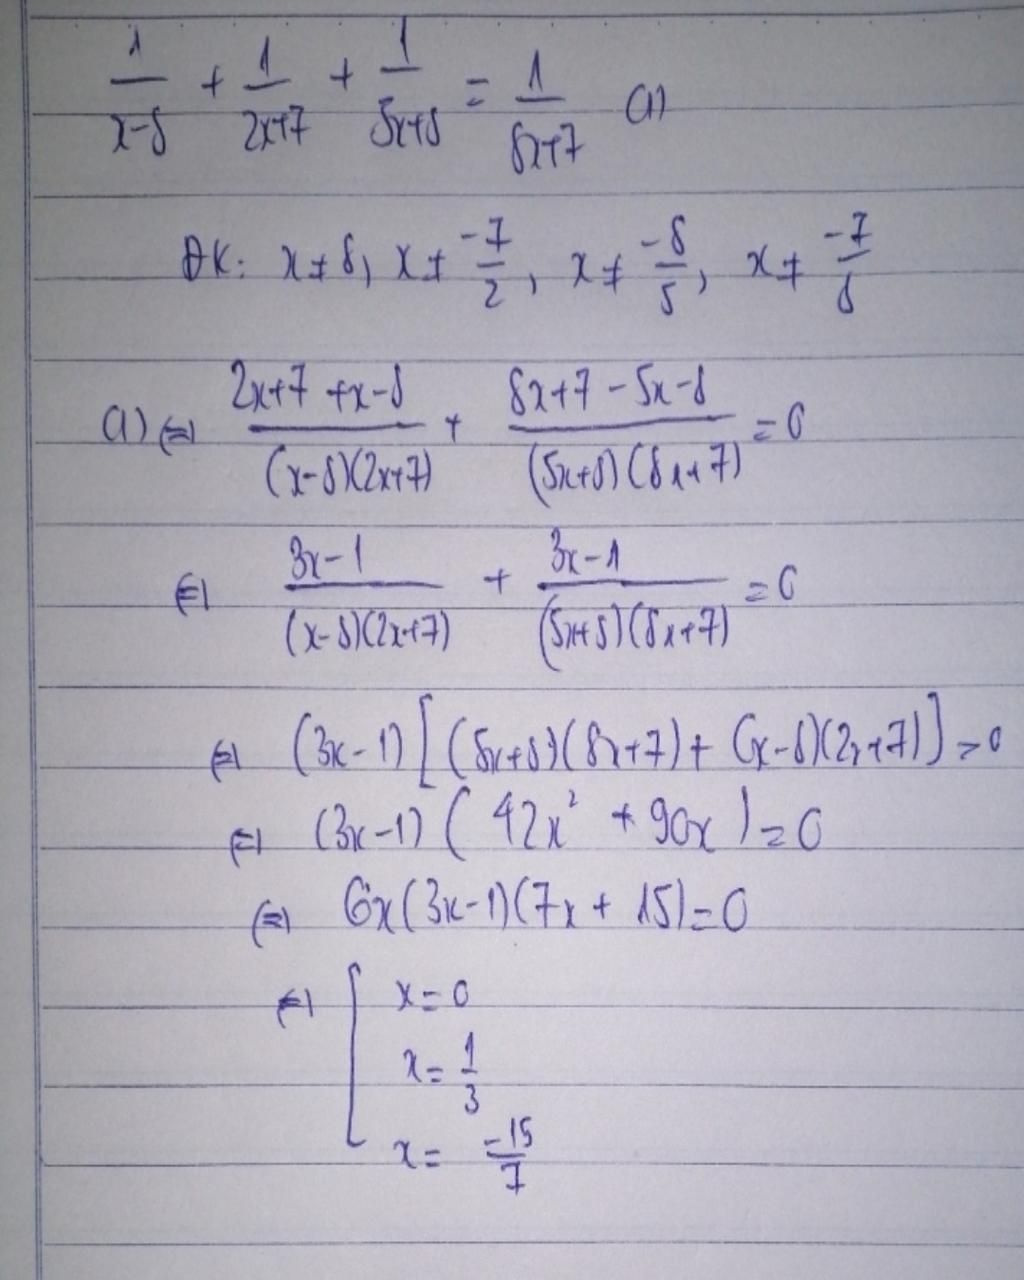 1/(x-8) + 1/(2x+7) + 1/(5x+8) = 1/(8x+7) (1)
ĐK: x ≠ 8, x ≠ -7/2, x ≠ -8/5, x ≠ -7/8
(1) ⇔ (2x+7+x-8)/((x-8)(2x+7)) + (8x+7-5x-8)/((5x+8)(8x+7)) = 0
⇔ (3x-1)/((x-8)(2x+7)) + (3x-1)/((5x+8)(8x+7)) = 0
⇔ (3x-1)[(5x+8)(8x+7) + (x-8)(2x+7)] = 0
⇔ (3x-1)(42x² + 90x) = 0
⇔ 6x(3x-1)(7x+15) = 0
⇔ [ x = 0
x = 1/3
x = -15/7